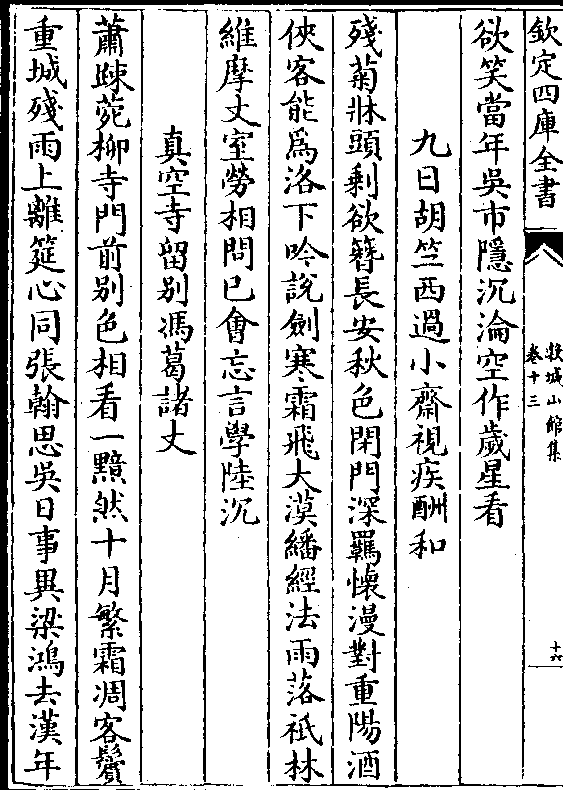 欽定四庫全書
牧城山館集
卷十三
十六
欲笑當年吳市隱沉淪空作歲星看
九日胡竺西過小齋視疾酬和
殘菊牀頭剩欲簪長安秋色閉門深羈懷漫對重陽酒
俠客能為洛下吟說劍寒霜飛大漠繙經法雨落祇林
維摩丈室勞相問已會忘言學陸沉
真空寺留別馮葛諸丈
蕭踈菀柳寺門前别色相看一黯然十月繁霜凋客鬢
重城殘雨上離筵心同張翰思吳日事異梁鴻去漢年